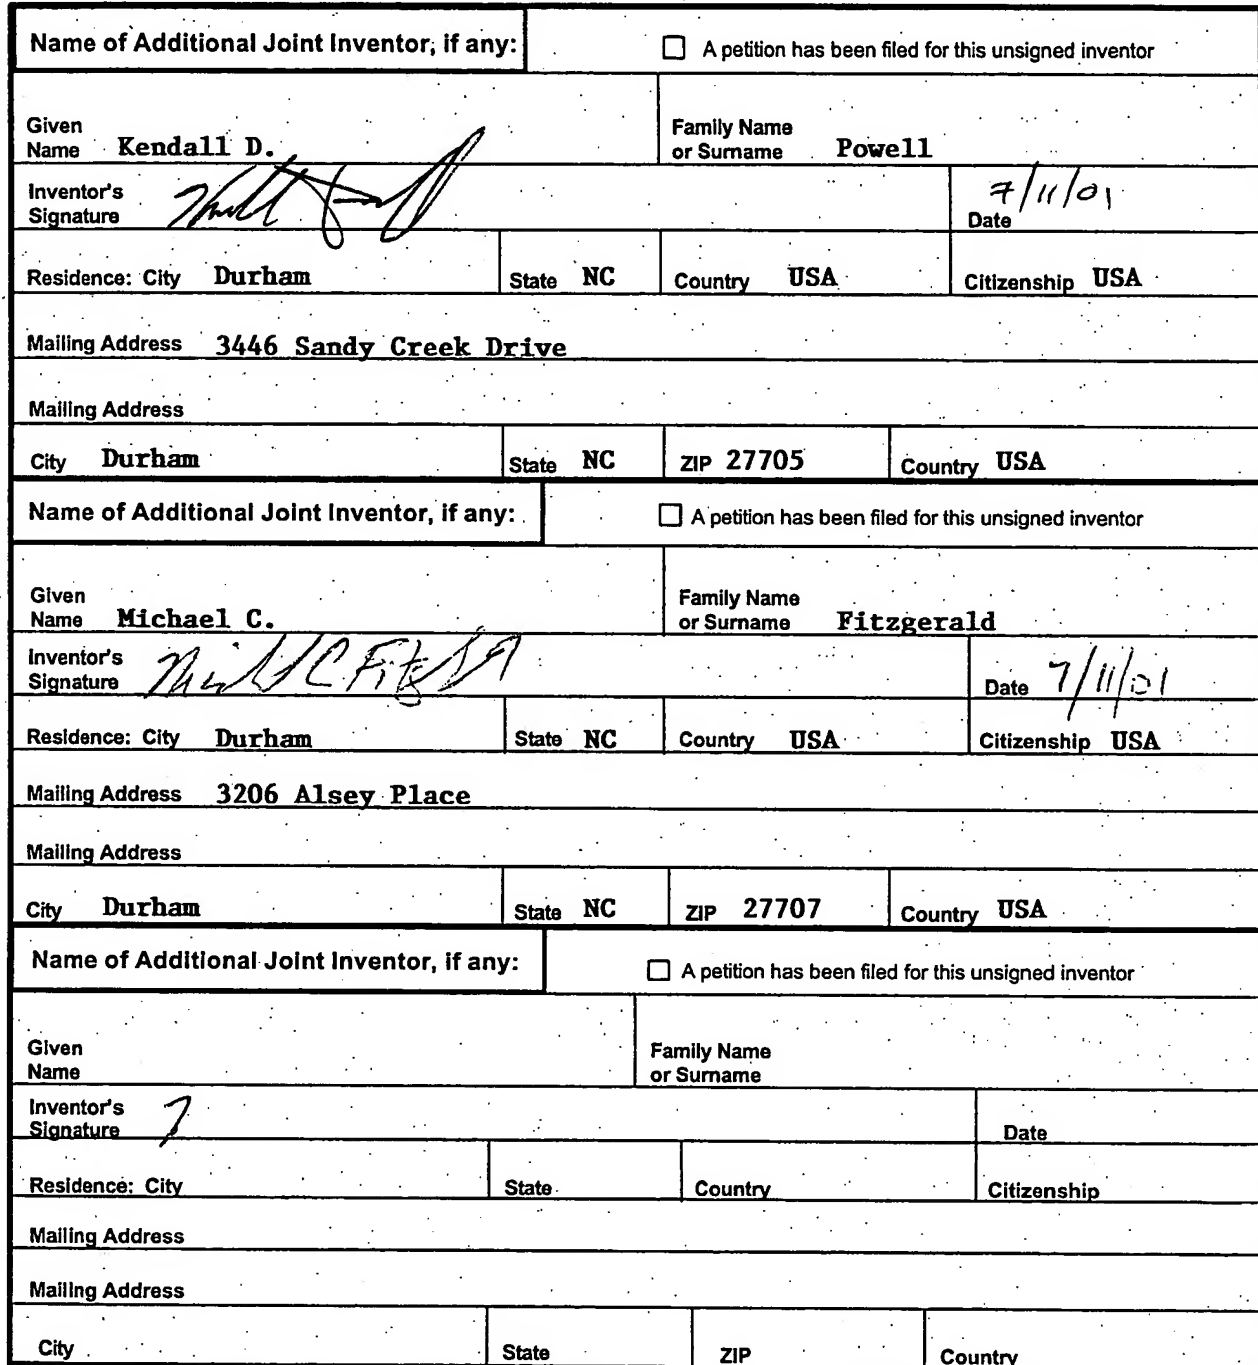 Name of Additional Joint Inventor, if any: ☐ A petition has been filed for this unsigned inventor
Given Name Kendall D. Family Name or Surname Powell
Inventor's Signature Date 7/11/01
Residence: City Durham State NC Country USA Citizenship USA
Mailing Address 3446 Sandy Creek Drive
Mailing Address
City Durham State NC ZIP 27705 Country USA
Name of Additional Joint Inventor, if any: ☐ A petition has been filed for this unsigned inventor
Given Name Michael C. Family Name or Surname Fitzgerald
Inventor's Signature Date 7/11/01
Residence: City Durham State NC Country USA Citizenship USA
Mailing Address 3206 Alsey Place
Mailing Address
City Durham State NC ZIP 27707 Country USA
Name of Additional Joint Inventor, if any: ☐ A petition has been filed for this unsigned inventor
Given Name Family Name or Surname
Inventor's Signature Date
Residence: City State Country Citizenship
Mailing Address
Mailing Address
City State ZIP Country